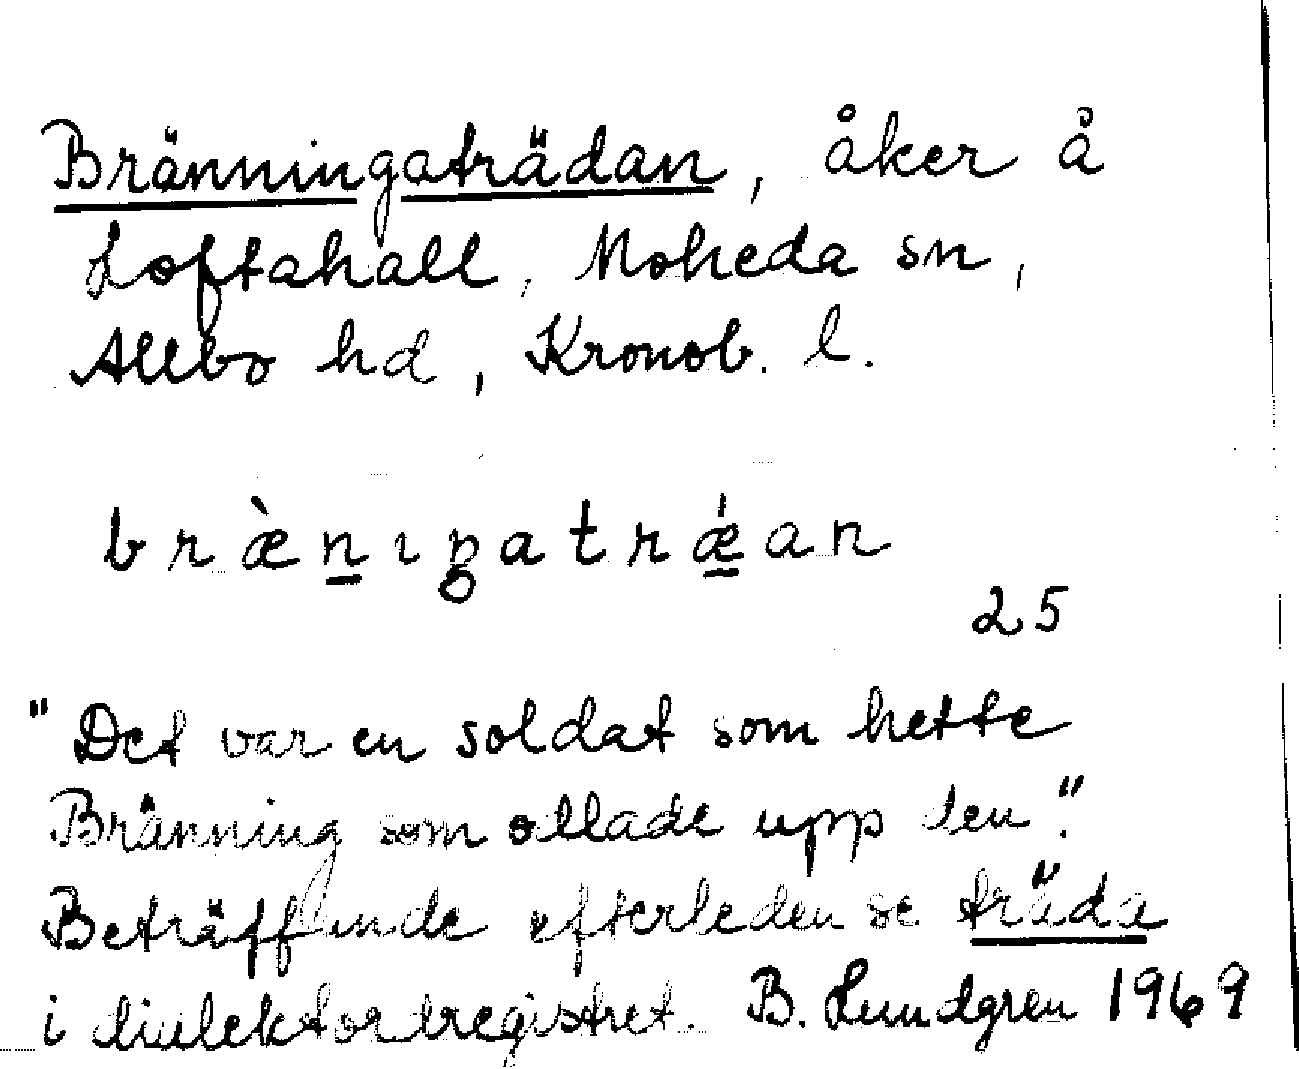 Bränningaträdan, åker å
Loftahall, Moheda sn,
Allbo hd, Kronob. l.
bræ̀n̲ıŋatrǽ̲an
25
"Det var en soldat som hette
Bränning som odlade upp den".
Beträffande efterleden se träda
i dialektordregistret. B. Lundgren 1969